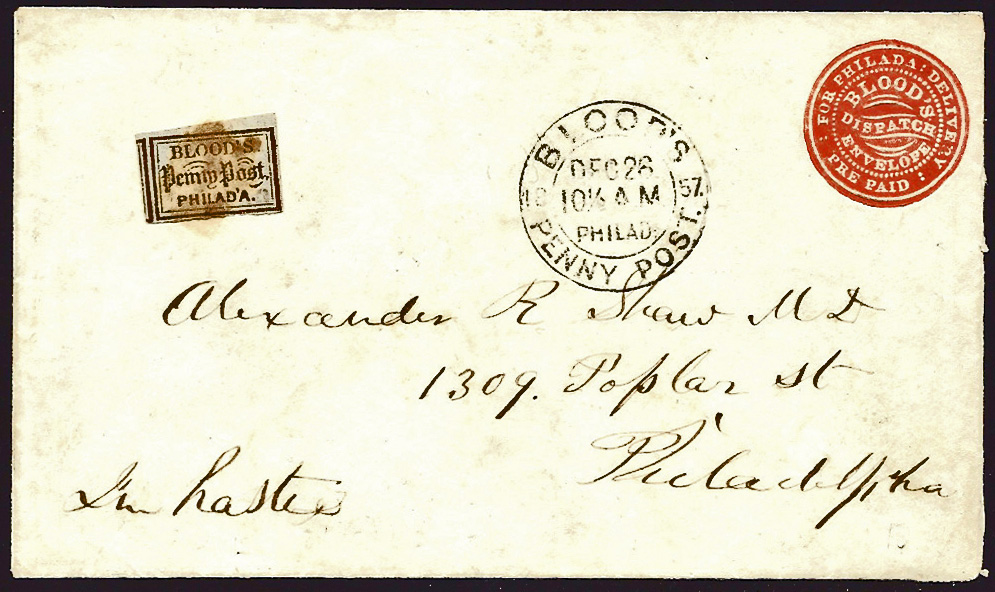 BLOOD'S
Penny Post,
PHILAD'A.
BLOOD'S
DEC 26
18 57
10½ A M
PHILAD.
PENNY POST.
FOR PHILADA: DELIVERY
BLOOD'S
DISPATCH
ENVELOPE
PRE PAID
Alexander R Shaw M D
1309. Poplar st
Philadelpha
In haste